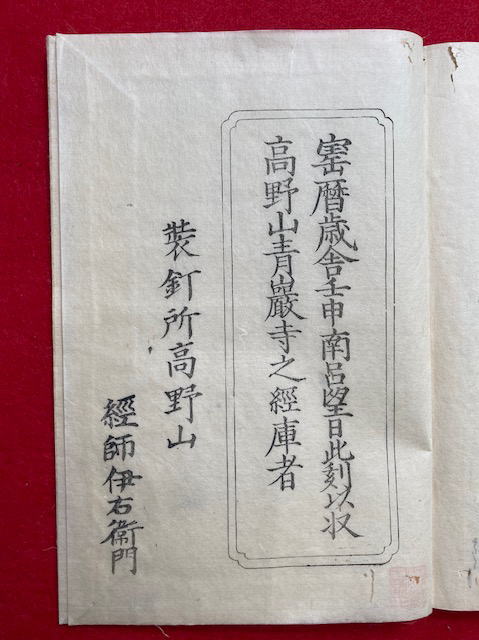 寚暦歳舎壬申南呂望日此刻以収
高野山青巖寺之經庫者
裝釘所高野山
經師伊右衞門